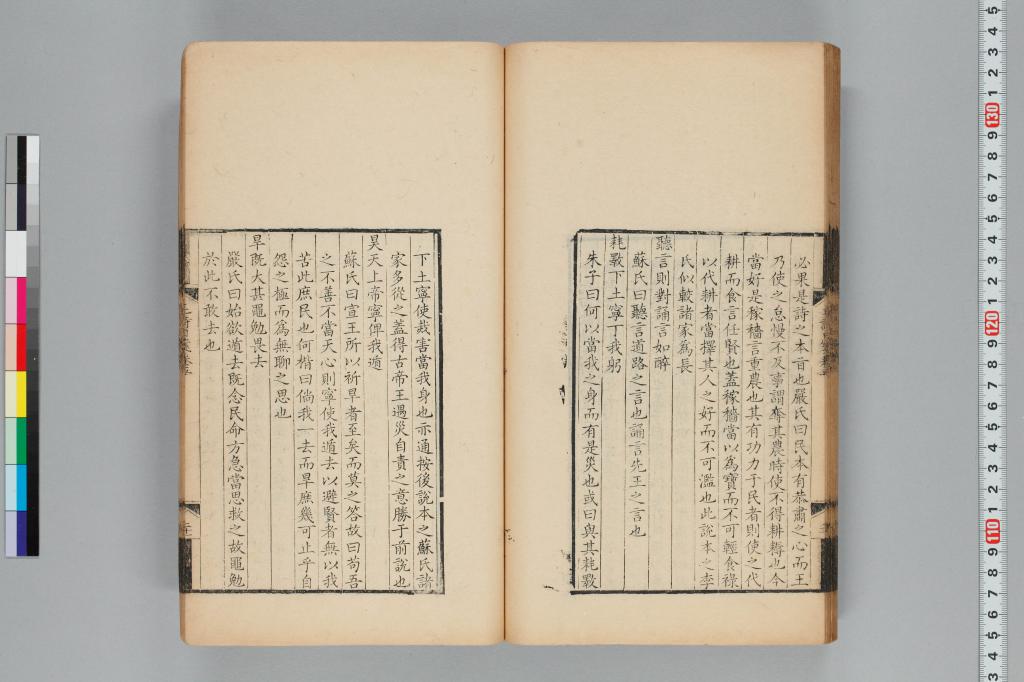 必果是詩之本旨也嚴氏曰民本有恭肅之心而王
乃使之怠慢不及事謂奪其農時使不得耕耨也今
當好是稼穡言重農也其有功力于民者則使之代
耕而食言任賢也蓋稼穡當以為寶而不可輕食祿
以代耕者當擇其人之好而不可濫也此說本之李
氏似較諸家為長
聽言則對誦言如醉
蘇氏曰聽言道路之言也誦言先王之言也
耗斁下土寧丁我躬
朱子曰何以當我之身而有是災也或曰與其耗斁
下土寧使烖害當我身也亦通按後說本之蘇氏諸
家多從之蓋得古帝王遇災自責之意勝于前說也
昊天上帝寧俾我遯
蘇氏曰宣王所以祈旱者至矣而莫之答故曰苟吾
之不善不當天心則寧使我遁去以避賢者無以我
苦此庶民也何楷曰倘我一去而旱庶幾可止乎自
怨之極而為無聊之思也
旱既大甚黽勉畏去
嚴氏曰始欲遁去既念民命方急當思救之故黽勉
於此不敢去也
5
4
3
2
1
130
9
8
7
6
5
4
3
2
1
120
9
8
7
6
5
4
3
2
1
110
9
8
7
6
5
4
3